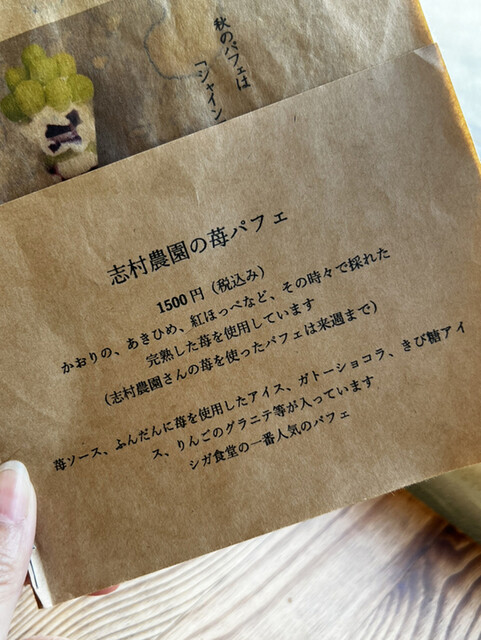 秋のパフェは
「シャイン
志村農園の苺パフェ
1500円（税込み）
かおりの、あきひめ、紅ほっぺなど、その時々で採れた
完熟した苺を使用しています
（志村農園さんの苺を使ったパフェは来週まで）
苺ソース、ふんだんに苺を使用したアイス、ガトーショコラ、きび糖アイ
ス、りんごのグラニテ等が入っています
シガ食堂の一番人気のパフェ